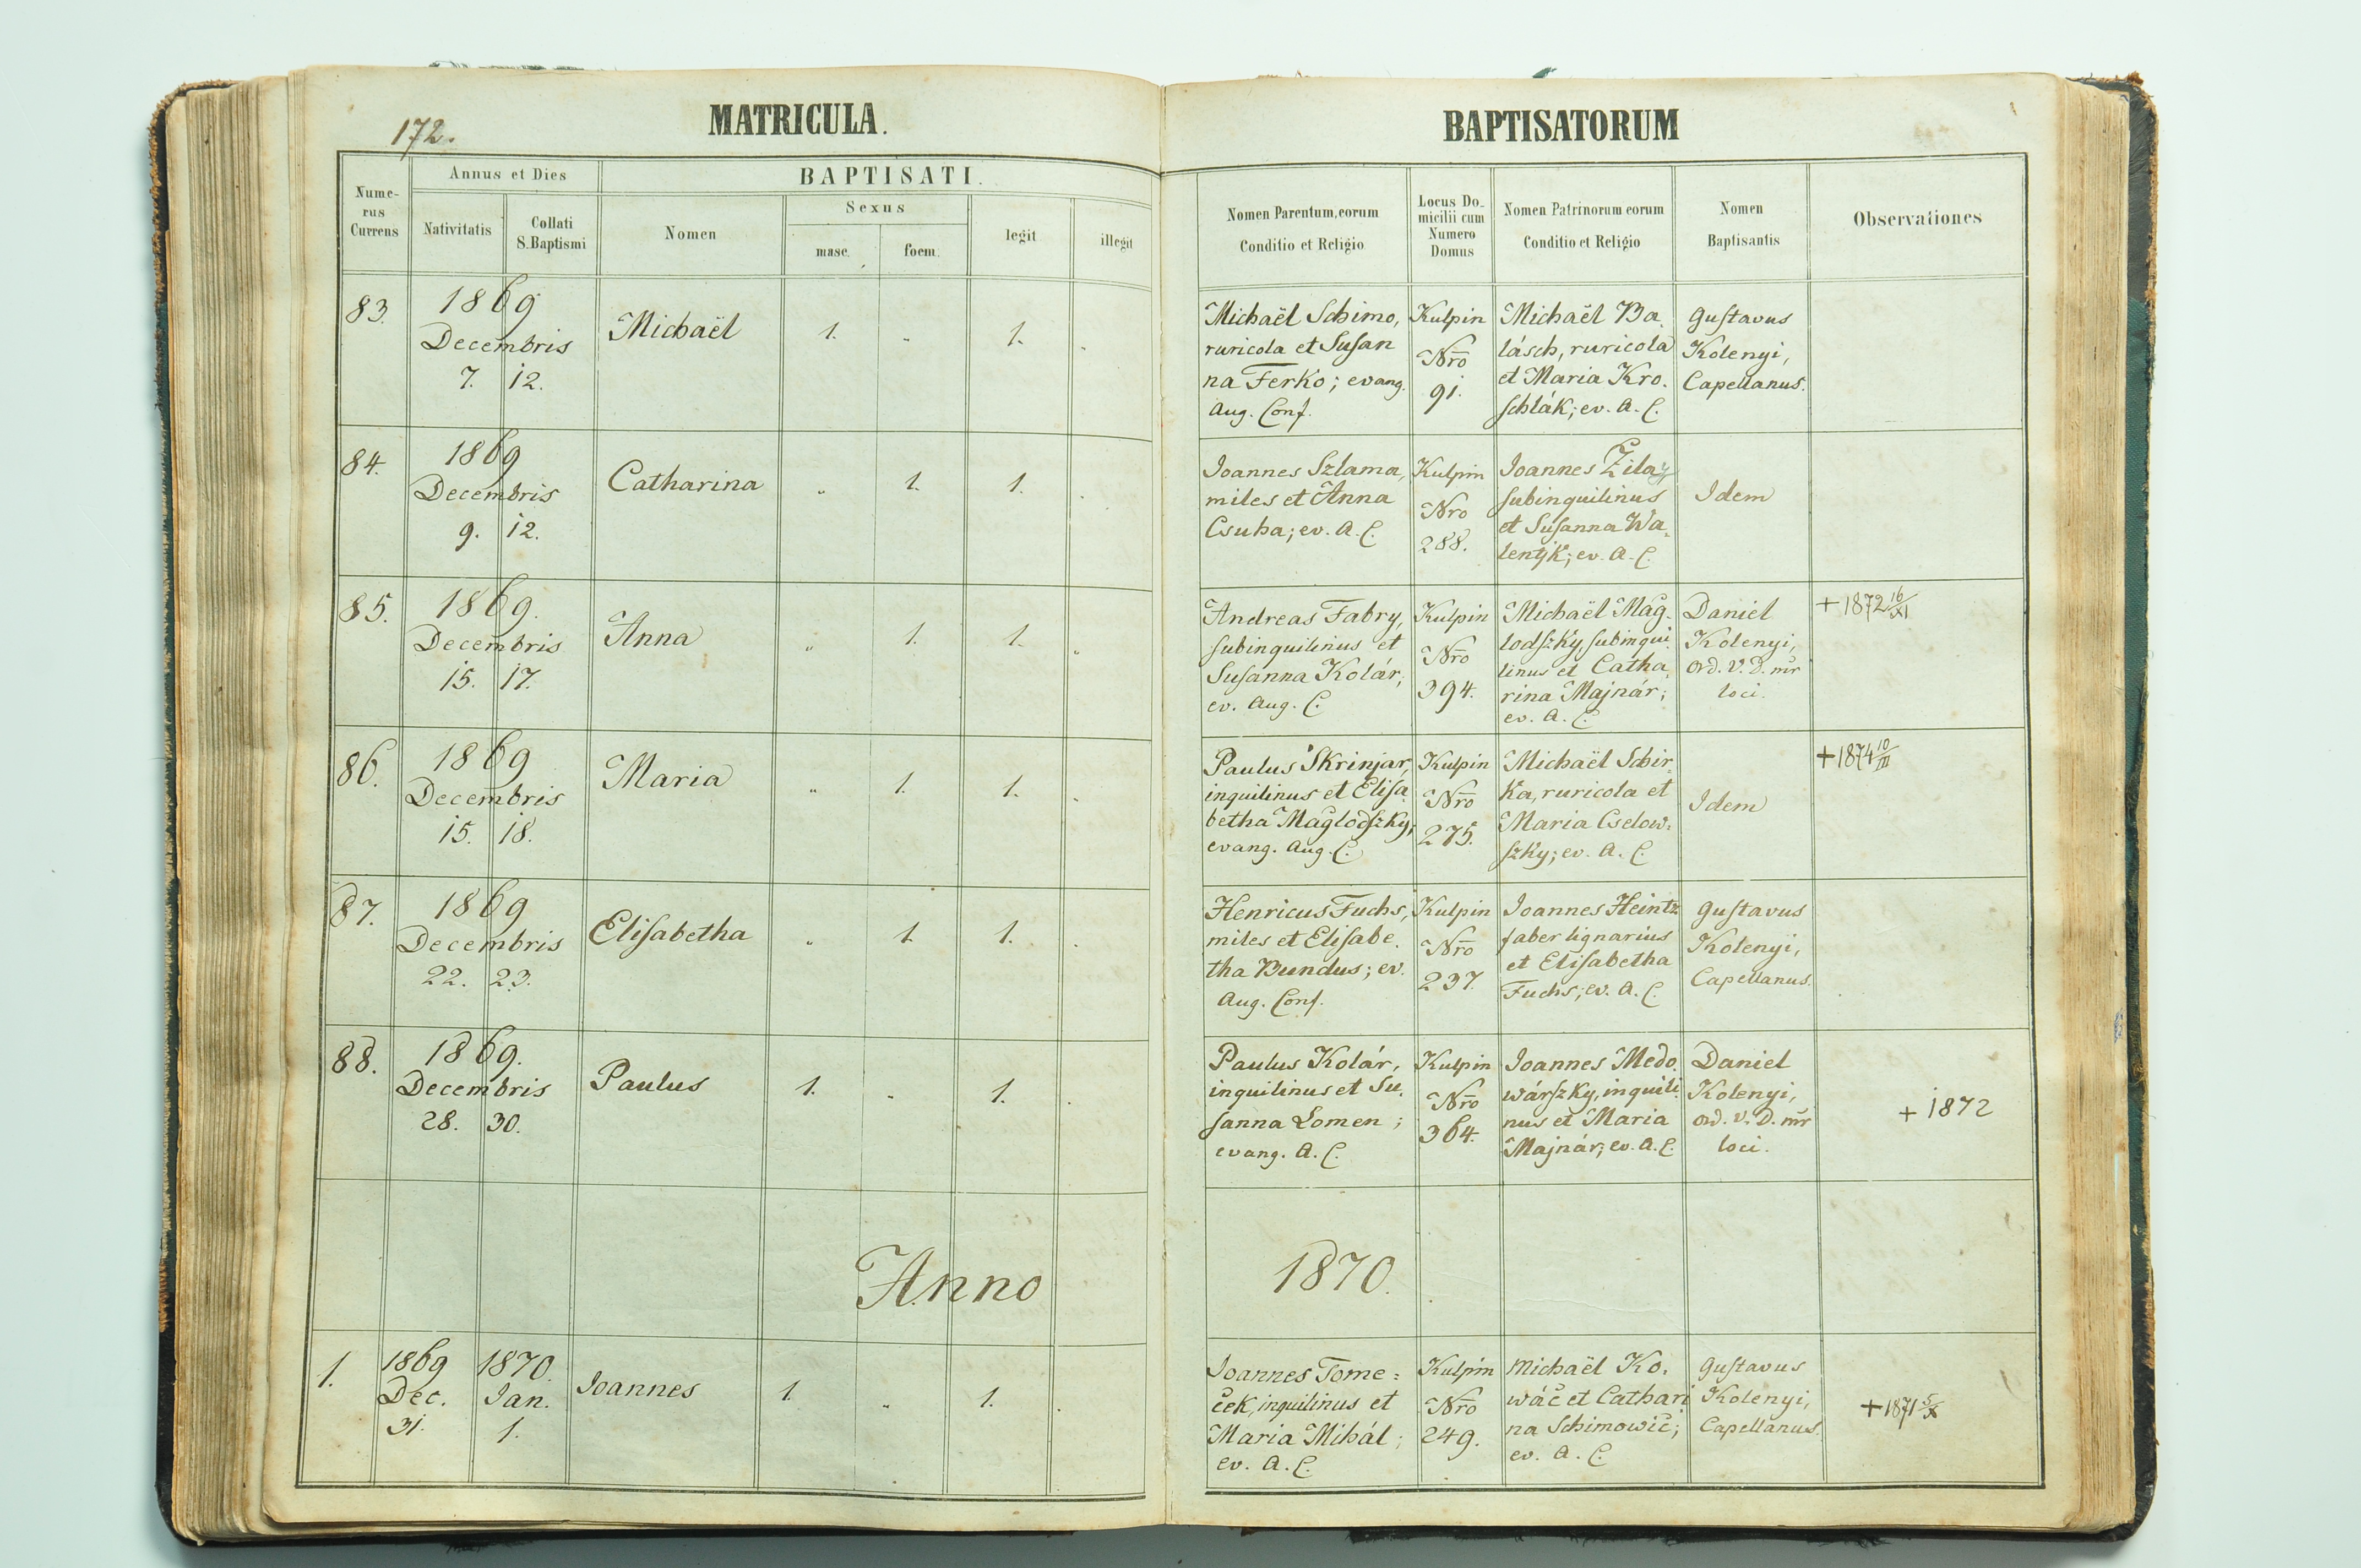 172.
MATRICULA.
BAPTISATORUM
Nume-
rus
Currens
Annus et Dies
Nativitatis
Collati
S. Baptismi
BAPTISATI.
Nomen
Sexus
masc.
foem.
legit
illegit
Nomen Parentum, eorum
Conditio et Religio
Locus Do-
micilii cum
Numero
Domus
Nomen Patrinorum eorum
Conditio et Religio
Nomen
Baptisantis
Observationes
83.
1869
Decembris
7. 12.
Michaël
1. „ 1. „
Michaël Schimo,
ruricola et Susan
na Ferko; evang.
Aug. Conf.
Kulpin
Nro
91.
Michaël Ba.
lásch, ruricola
et Maria Kro.
schlák; ev. A. C.
Gustavus
Kolenyi,
Capellanus.
84.
1869
Decembris
9. 12.
Catharina
„ 1. 1. „
Joannes Szlama,
miles et Anna
Csuha; ev. A. C.
Kulpin
Nro
288.
Joannes Zilay,
subinquilinus
et Susanna Wa-
lentjk; ev. A. C.
Idem
85.
1869.
Decembris
15. 17.
Anna
„ 1. 1. „
Andreas Fabry,
subinquilinus et
Susanna Kolár;
ev. Aug. C.
Kulpin
Nro
394.
Michaël Mag-
lodszky, subinqui.
linus et Catha.
rina Majnár;
ev. A. C.
Daniel
Kolenyi,
Ord. V. D. mr
loci.
+ 1872 16/XI
86.
1869
Decembris
15. 18.
Maria
„ 1. 1. „
Paulus Skrinjar,
inquilinus et Elisa.
betha Maglodszky;
evang. Aug. C.
Kulpin
Nro
275.
Michaël Schir-
ka, ruricola et
Maria Cselow-
szky; ev. A. C.
Idem
+ 1874 10/III
87.
1869
Decembris
22. 23.
Elisabetha
„ 1. 1. „
Henricus Fuchs,
miles et Elisabe.
tha Bundus; ev.
Aug. Conf.
Kulpin
Nro
237.
Joannes Heintz
faber lignarius
et Elisabetha
Fuchs; ev. A. C.
Gustavus
Kolenyi,
Capellanus.
88.
1869.
Decembris
28. 30.
Paulus
1. „ 1. „
Paulus Kolár,
inquilinus et Su.
sanna Lomen;
evang. A. C.
Kulpin
Nro
364.
Joannes Medo.
wárszky, inquili.
nus et Maria
Majnár; ev. A. C.
Daniel
Kolenyi,
Ord. V. D. mr
loci.
+ 1872
Anno 1870.
1.
1869 1870.
Dec. Jan.
31. 1.
Joannes
1. „ 1. .
Joannes Tome=
ček, inquilinus et
Maria Mihál;
ev. A. C.
Kulpin
Nro
249.
Michaël Ko.
wáč et Cathari
na Schimowič;
ev. A. C.
Gustavus
Kolenyi,
Capellanus.
+ 1871 5/X